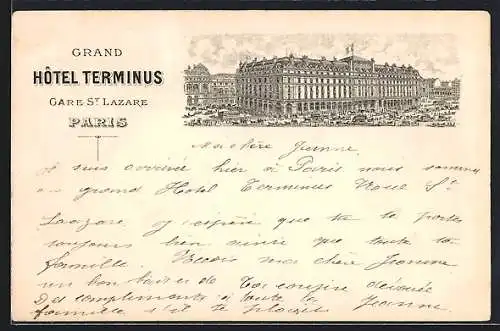 GRAND
HÔTEL TERMINUS
GARE ST LAZARE
PARIS
Ma chère Jeanne
Je suis arrivée hier à Paris nous sommes
au grand Hotel Terminus Roue St
Laazare j'espère que tu te porte
toujours bien ainsie que toute ta
famille. Recois ma chère Jeanne
un bon baiser de Ta cousine dévouée
des complements à toute la Jeanne.
famille s'il te plaies